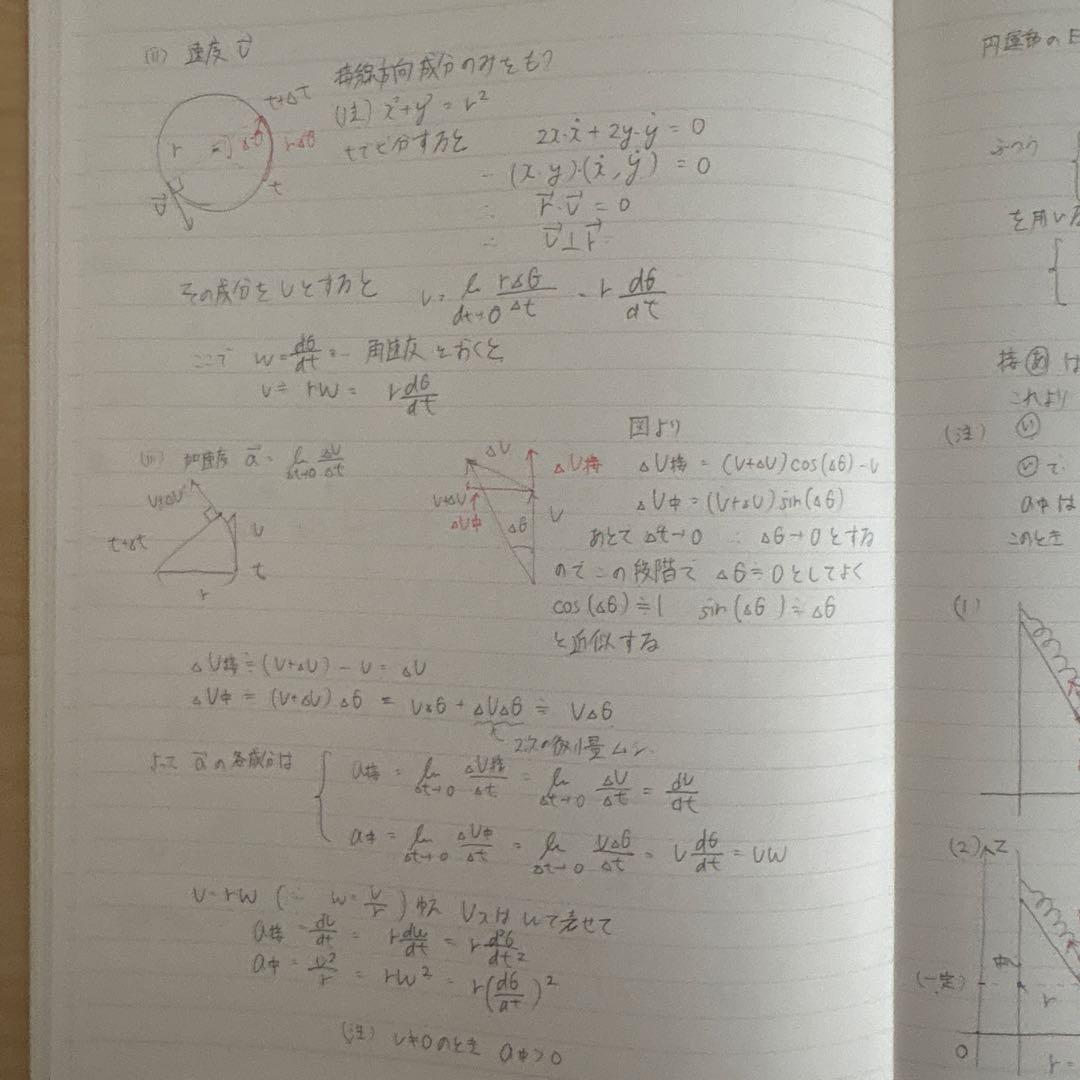 (ii) 速度 v⃗
接線方向成分のみをもつ
(注) x²+y² = r²
tでび分すると 2x·ẋ + 2y·ẏ = 0
(x·y)·(ẋ, ẏ) = 0
∴ r⃗·v⃗ = 0
∴ v⃗⊥r⃗
t+Δt
r Δθ rΔθ
t
v⃗
その成分をvとすると v = lim dt→0 rΔθ/Δt = r dθ/dt
ここで w = dθ/dt = … 角速度 とおくと
v = rw = r dθ/dt
(iii) 加速度 a⃗ = lim Δt→0 Δv/Δt
v+Δv
t+Δt v
t
r
Δv
Δv接
v+Δv
Δv中 Δθ v
図より
Δv接 = (v+Δv)cos(Δθ) - v
Δv中 = (v+Δv)sin(Δθ)
あとで Δt→0 ∴ Δθ→0とする
のでこの段階で Δθ≒0としてよく
cos(Δθ)≒1 sin(Δθ)≒Δθ
と近似する
Δv接 ≒ (v+Δv) - v = Δv
Δv中 = (v+Δv)Δθ = vΔθ + ΔvΔθ ≒ vΔθ
2次の微小量ムシ.
よって a⃗の各成分は
a接 = lim Δt→0 Δv接/Δt = lim Δt→0 Δv/Δt = dv/dt
a中 = lim Δt→0 Δv中/Δt = lim Δt→0 vΔθ/Δt = v dθ/dt = vw
v=rw (∴ w = v/r) ゆえ v又はwで表せて
a接 = dv/dt = r dw/dt = r d²θ/dt²
a中 = v²/r = rw² = r(dθ/dt)²
(注) v≠0のとき a中>0
円運動の
ふつう
を用いる
接あは
これより
(注) い
いで
a中は
このとき
(1)
(2) z
中
(一定)
r
0
r =